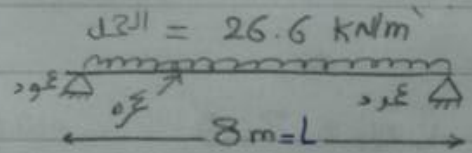 الحمل = 26.6 KN/m`
عمود عمود
8m=L